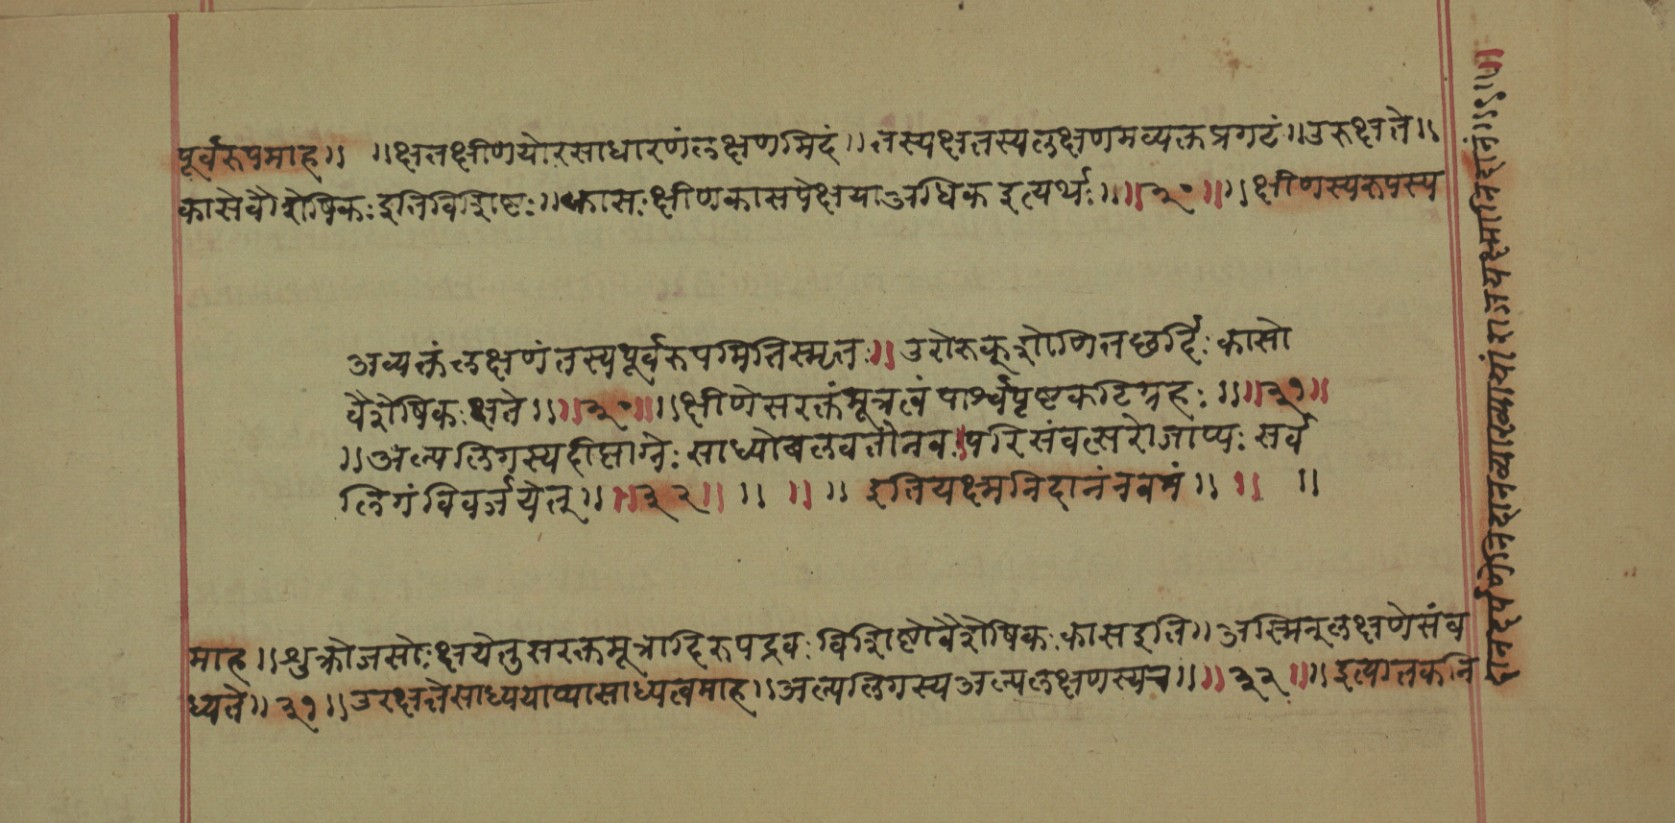 पूर्वरुपमाह॥ ॥क्षतक्षीणयोरसाधारणंलक्षणमिदं॥तस्यक्षतस्यलक्षणमव्यक्तप्रगटं॥उरुक्षते॥
कासेवैशेषिकःइतिविशिष्टः॥कासःक्षीणकासपेक्षयाअधिकइत्यर्थः॥॥३०॥॥क्षीणस्यरुपस्य
अव्यक्तंलक्षणंतस्यपूर्वरुपमितिस्मृतः॥उरोरुक्शोणितछर्दिःकासो
वैशेषिकःक्षते॥॥३०॥॥क्षीणेसरक्तंमूत्रत्वंपार्श्वपृष्टकटिग्रहः॥॥३१॥
॥अल्पलिगस्यदीप्ताग्नेःसाध्योबलवतोनवः।परिसंवत्सरोजाप्यःसर्व
लिगंविवर्जयेत्॥॥३२॥ ॥ ॥ ॥ इतियक्ष्मनिदानंनवमं॥ ॥ ॥
माह॥शुक्रोजसोःक्षयेतुसरक्तमूत्रादिरुपद्रवःविशिष्टोवैशेषिकःकासइति॥अस्मिन्लक्षणेसंब
ध्यते॥३१॥उरक्षतेसाध्ययाप्यासाध्यत्वमाह॥अल्पलिगस्यअल्पलक्षणस्यच॥॥३२॥॥इत्यातकनि
राजयक्ष्मानिदानं॥९॥